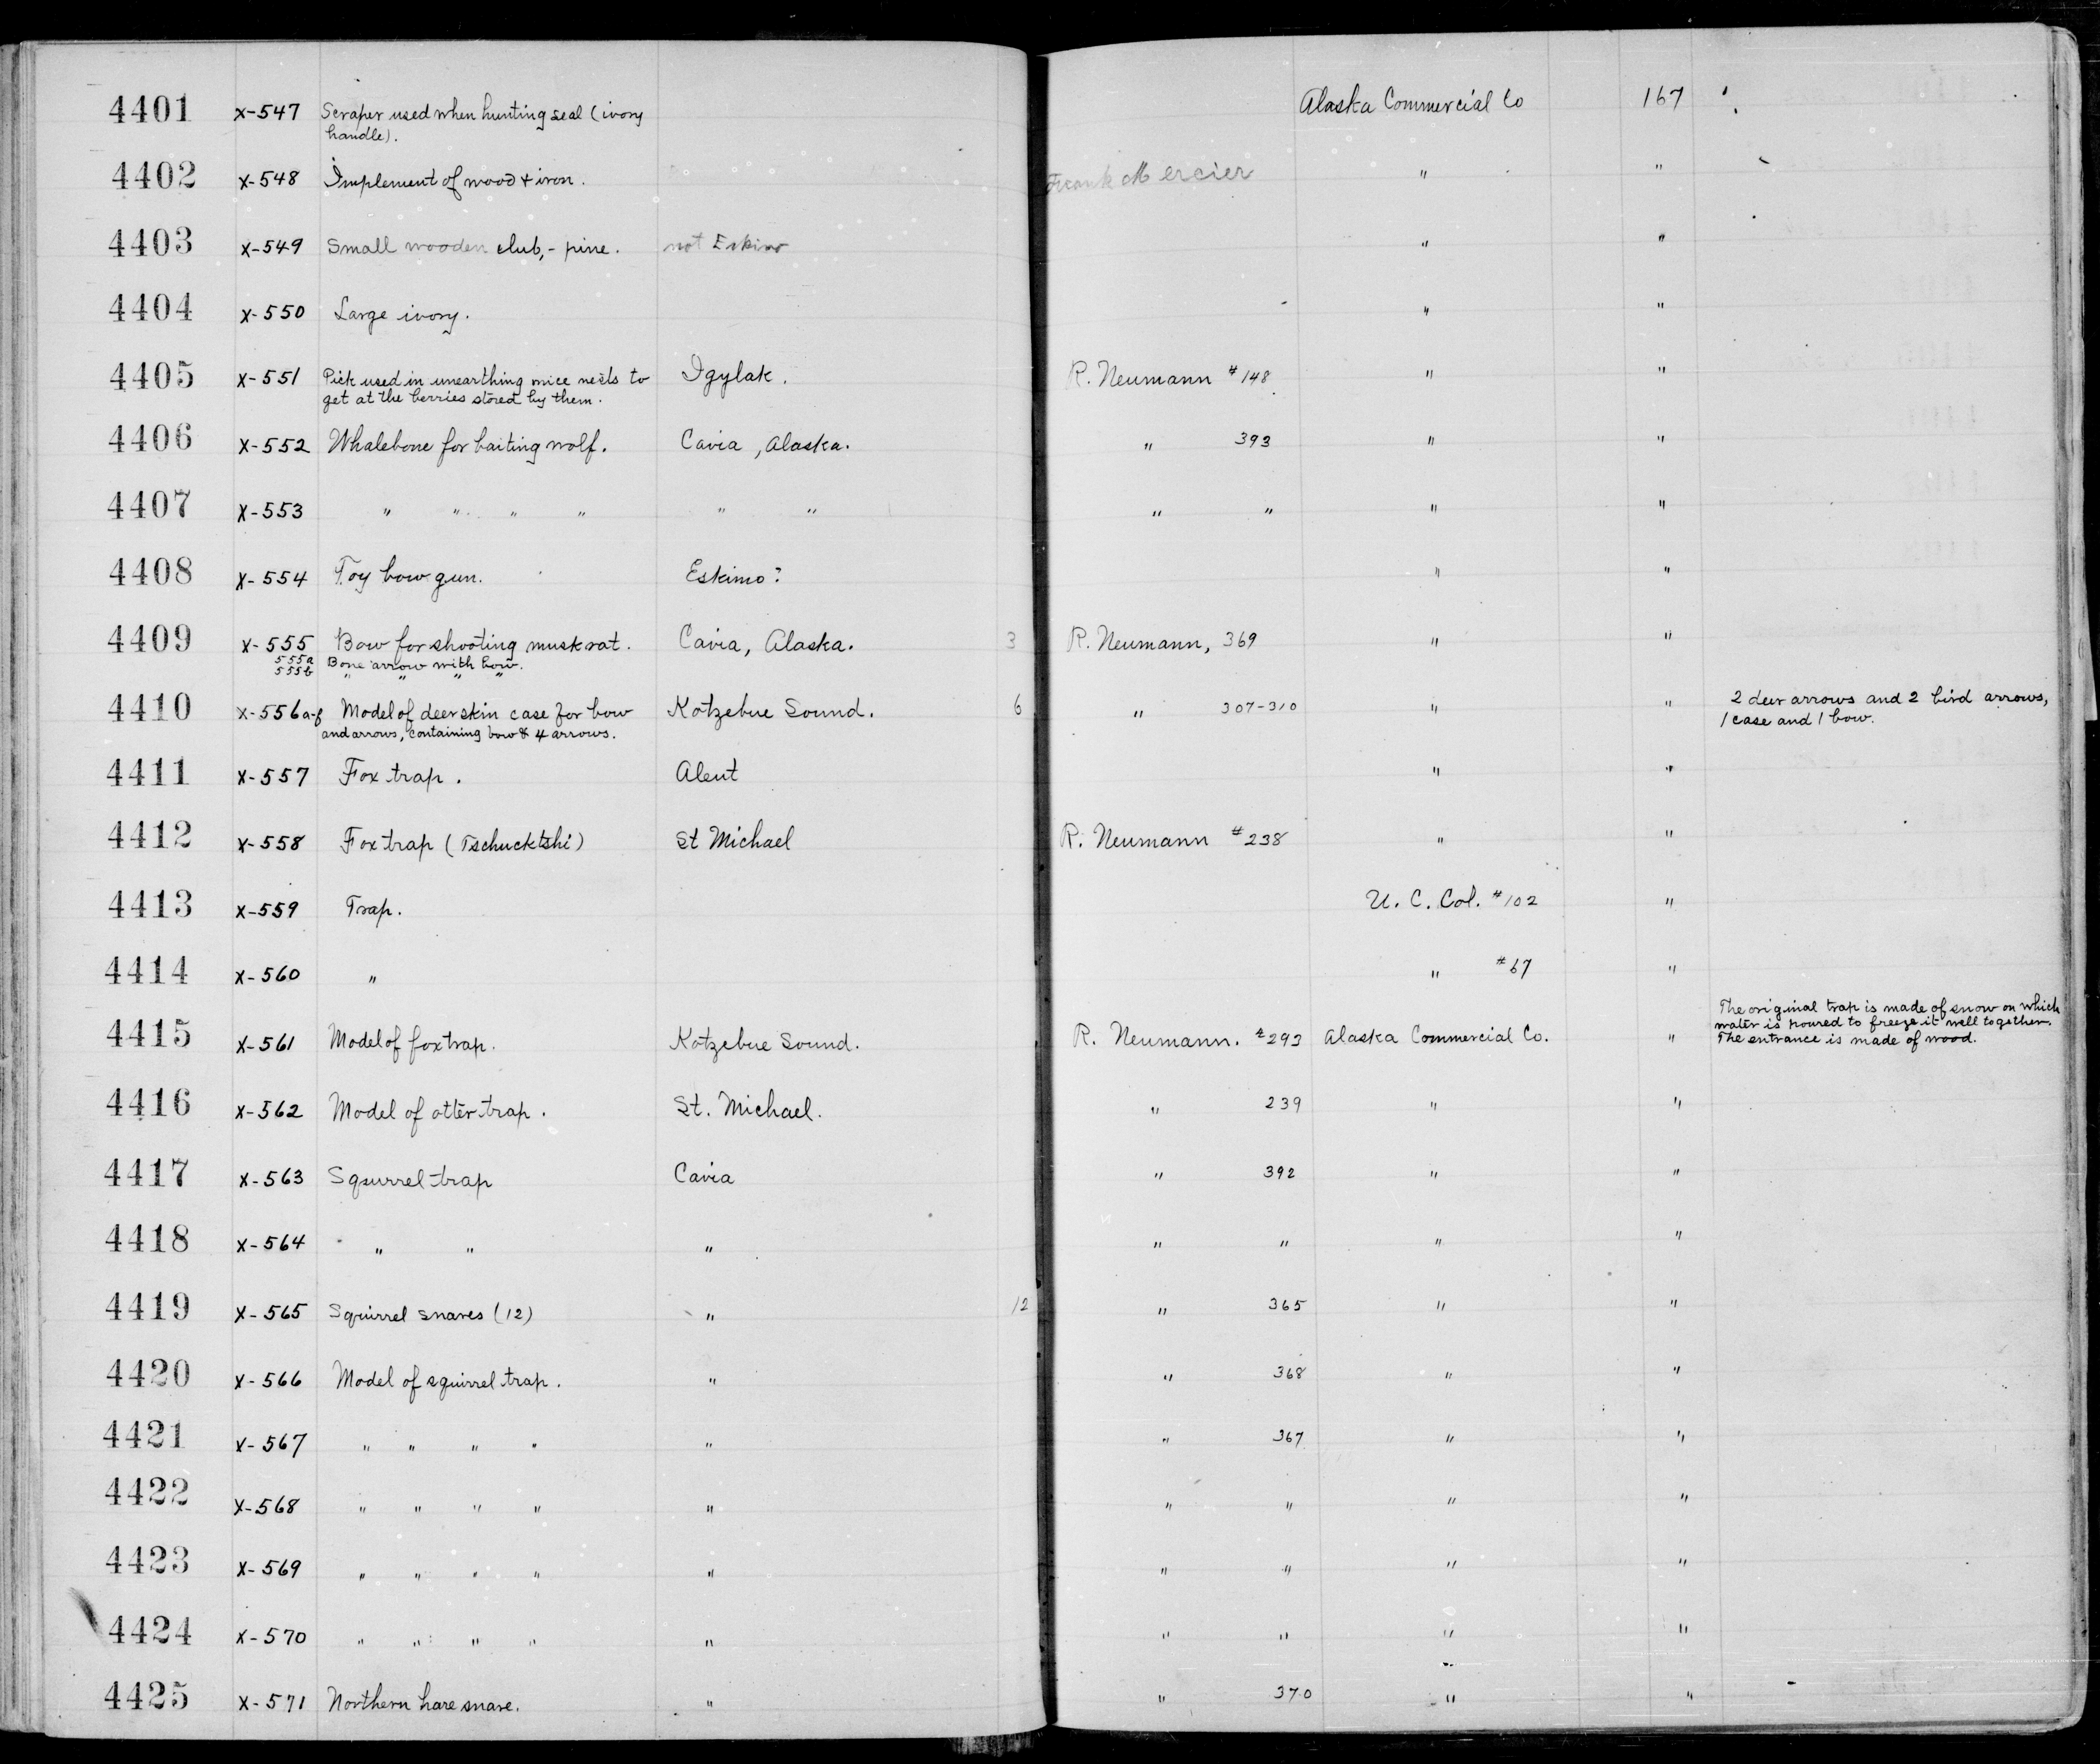 4401 X-547 Scraper used when hunting seal (ivory Alaska Commercial Co 167
handle).
4402 X-548 Implement of wood + iron. Frank Mercier " "
4403 X-549 Small wooden club, - pine. not Eskimo " "
4404 X-550 Large ivory. " "
4405 X-551 Pick used in unearthing mice nests to Igylak. R. Neumann #148 " "
get at the berries stored by them.
4406 X-552 Whalebone for baiting wolf. Cavia, Alaska. " 393 " "
4407 X-553 " " " " " " " " " "
4408 X-554 Toy bow gun. Eskimo? " "
4409 X-555 Bow for shooting muskrat. Cavia, Alaska. 3 R. Neumann, 369 " "
555a Bone arrow with bow.
555b " " " "
4410 X-556a-f Model of deerskin case for bow Kotzebue Sound. 6 " 307-310 " " 2 deer arrows and 2 bird arrows,
and arrows, containing bow & 4 arrows. 1 case and 1 bow.
4411 X-557 Fox trap. Aleut " "
4412 X-558 Fox trap (Tschucktshi) St Michael R. Neumann #238 " "
4413 X-559 Trap. U. C. Col. #102 "
4414 X-560 " " #67 "
The original trap is made of snow on which
water is poured to freeze it well together.
4415 X-561 Model of fox trap. Kotzebue Sound. R. Neumann. #293 Alaska Commercial Co. " The entrance is made of wood.
4416 X-562 Model of otter trap. St. Michael. " 239 " "
4417 X-563 Sqsurrel trap Cavia " 392 " "
4418 X-564 " " " " " " "
4419 X-565 Squirrel snares (12) " 12 " 365 " "
4420 X-566 Model of squirrel trap. " " 368 " "
4421 X-567 " " " " " " 367 " "
4422 X-568 " " " " " " " " "
4423 X-569 " " " " " " " " "
4424 X-570 " " " " " " " " "
4425 X-571 Northern hare snare. " " 370 " "